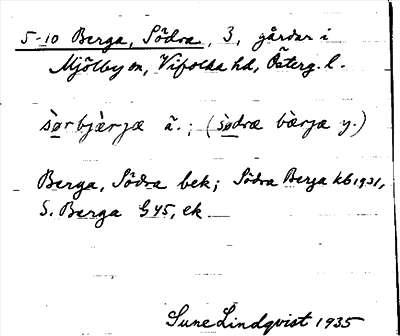 5-10 Berga, Södra, 3, gårdar i
Mjölby sn, Vifolka hd, Österg. l.
sørbjærjæ ä.; (sødræ bærja y.)
Berga, Södra bek; Södra Berga kb 1931,
S. Berga G45, ek
Sune Lindqvist 1935